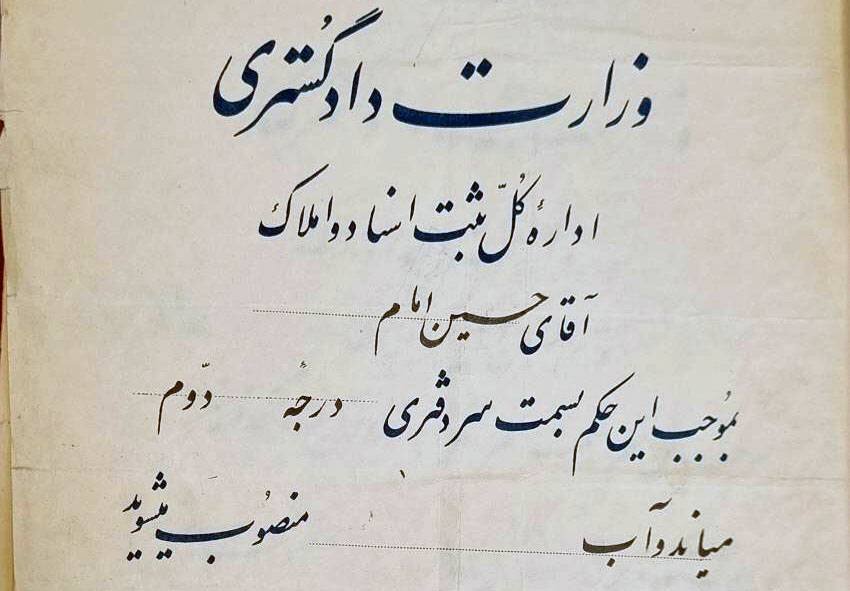 وزارت دادگُستری
ادارهٔ کُلّ ثبت اسناد و املاک
آقای حسین امام
بموُجب این حکم بسمت سردفتری درجهٔ دوّم
میاندوآب منصوُب میشوید